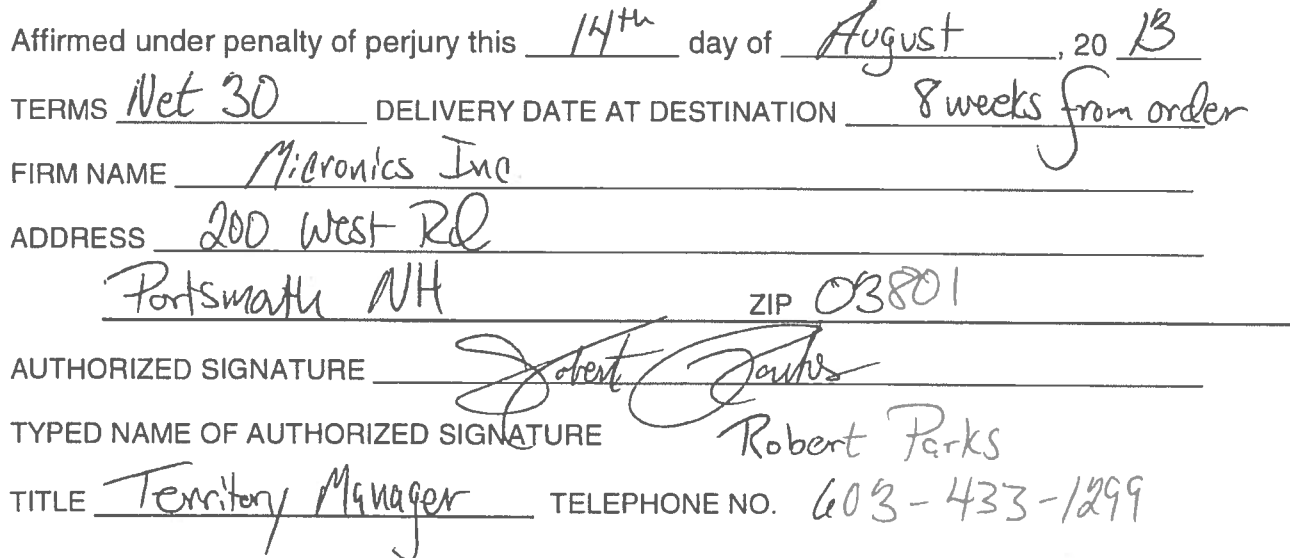 Affirmed under penalty of perjury this 14th day of August, 20 13
TERMS Net 30 DELIVERY DATE AT DESTINATION 8 weeks from order
FIRM NAME Micronics Inc
ADDRESS 200 West Rd
Portsmath NH ZIP 03801
AUTHORIZED SIGNATURE Robert Parks
TYPED NAME OF AUTHORIZED SIGNATURE Robert Parks
TITLE Territory Manager TELEPHONE NO. 603-433-1299